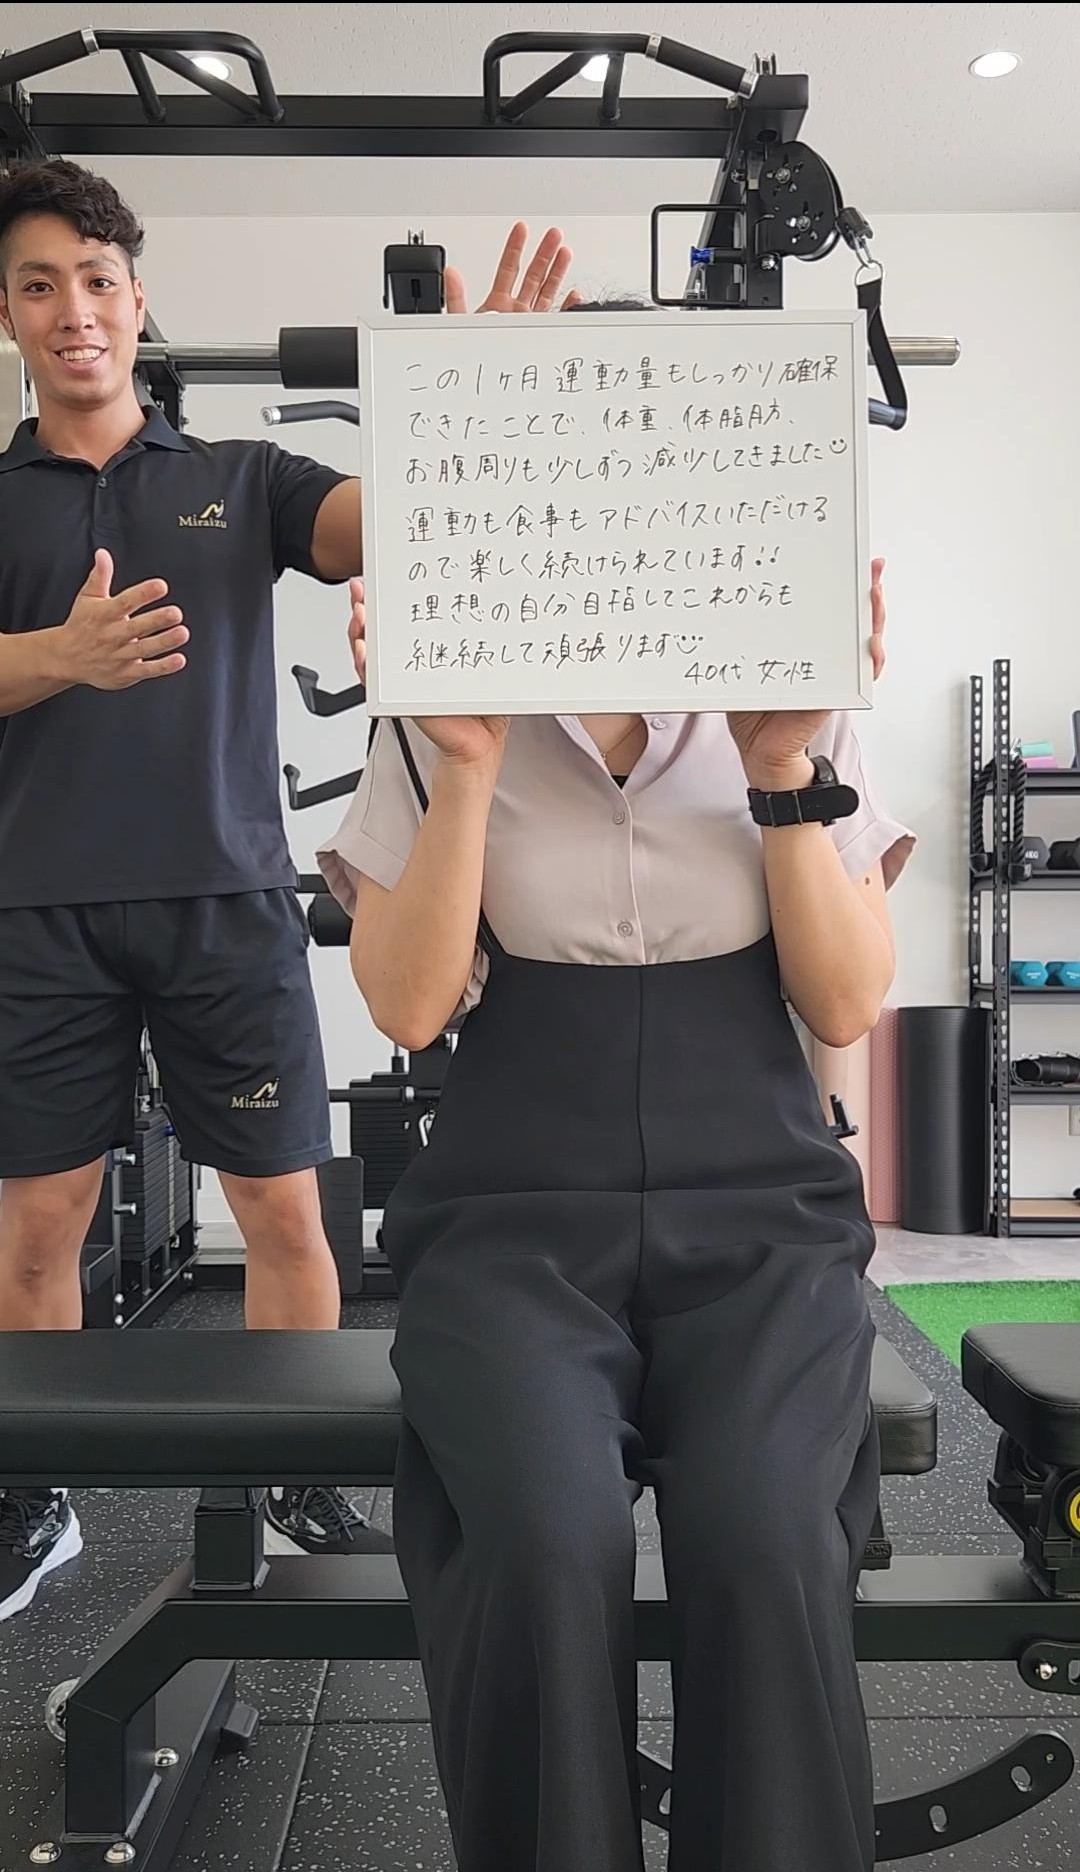 この1ヶ月運動量もしっかり確保
できたことで、体重、体脂肪、
お腹周りも少しずつ減少してきました
運動も食事もアドバイスいただける
ので楽しく続けられています!!
理想の自分目指してこれからも
継続して頑張ります
40代 女性
Miraizu
Miraizu